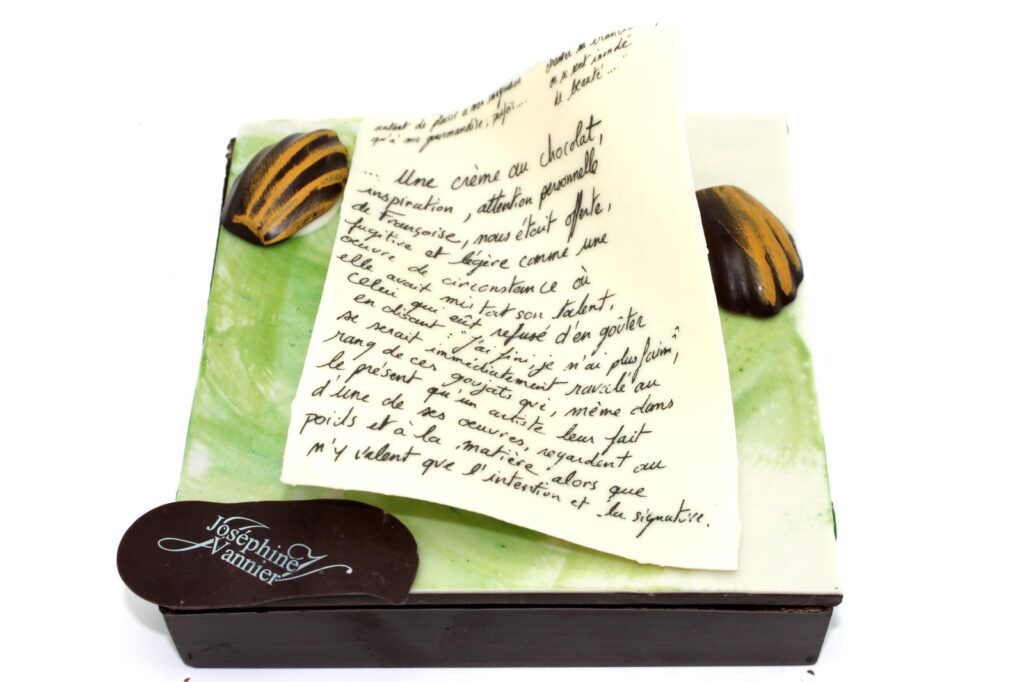 autant de plaisir à nos
qu'à ma gourmandise ; parfois....
de beauté ....."
... Une crème au chocolat,
inspiration, attention personnelle
de Françoise, nous était offerte,
fugitive et légère comme une
oeuvre de circonstance où
elle avait mis tout son talent.
Celui qui eût refusé d'en goûter
en disant : "J'ai fini, je n'ai plus faim",
se serait immédiatement ravalé au
rang de ces goujats qui, même dans
le présent qu'un artiste leur fait
d'une de ses oeuvres, regardent au
poids et à la matière alors que
n'y valent que l'intention et la signature.
Joséphine
Vannier